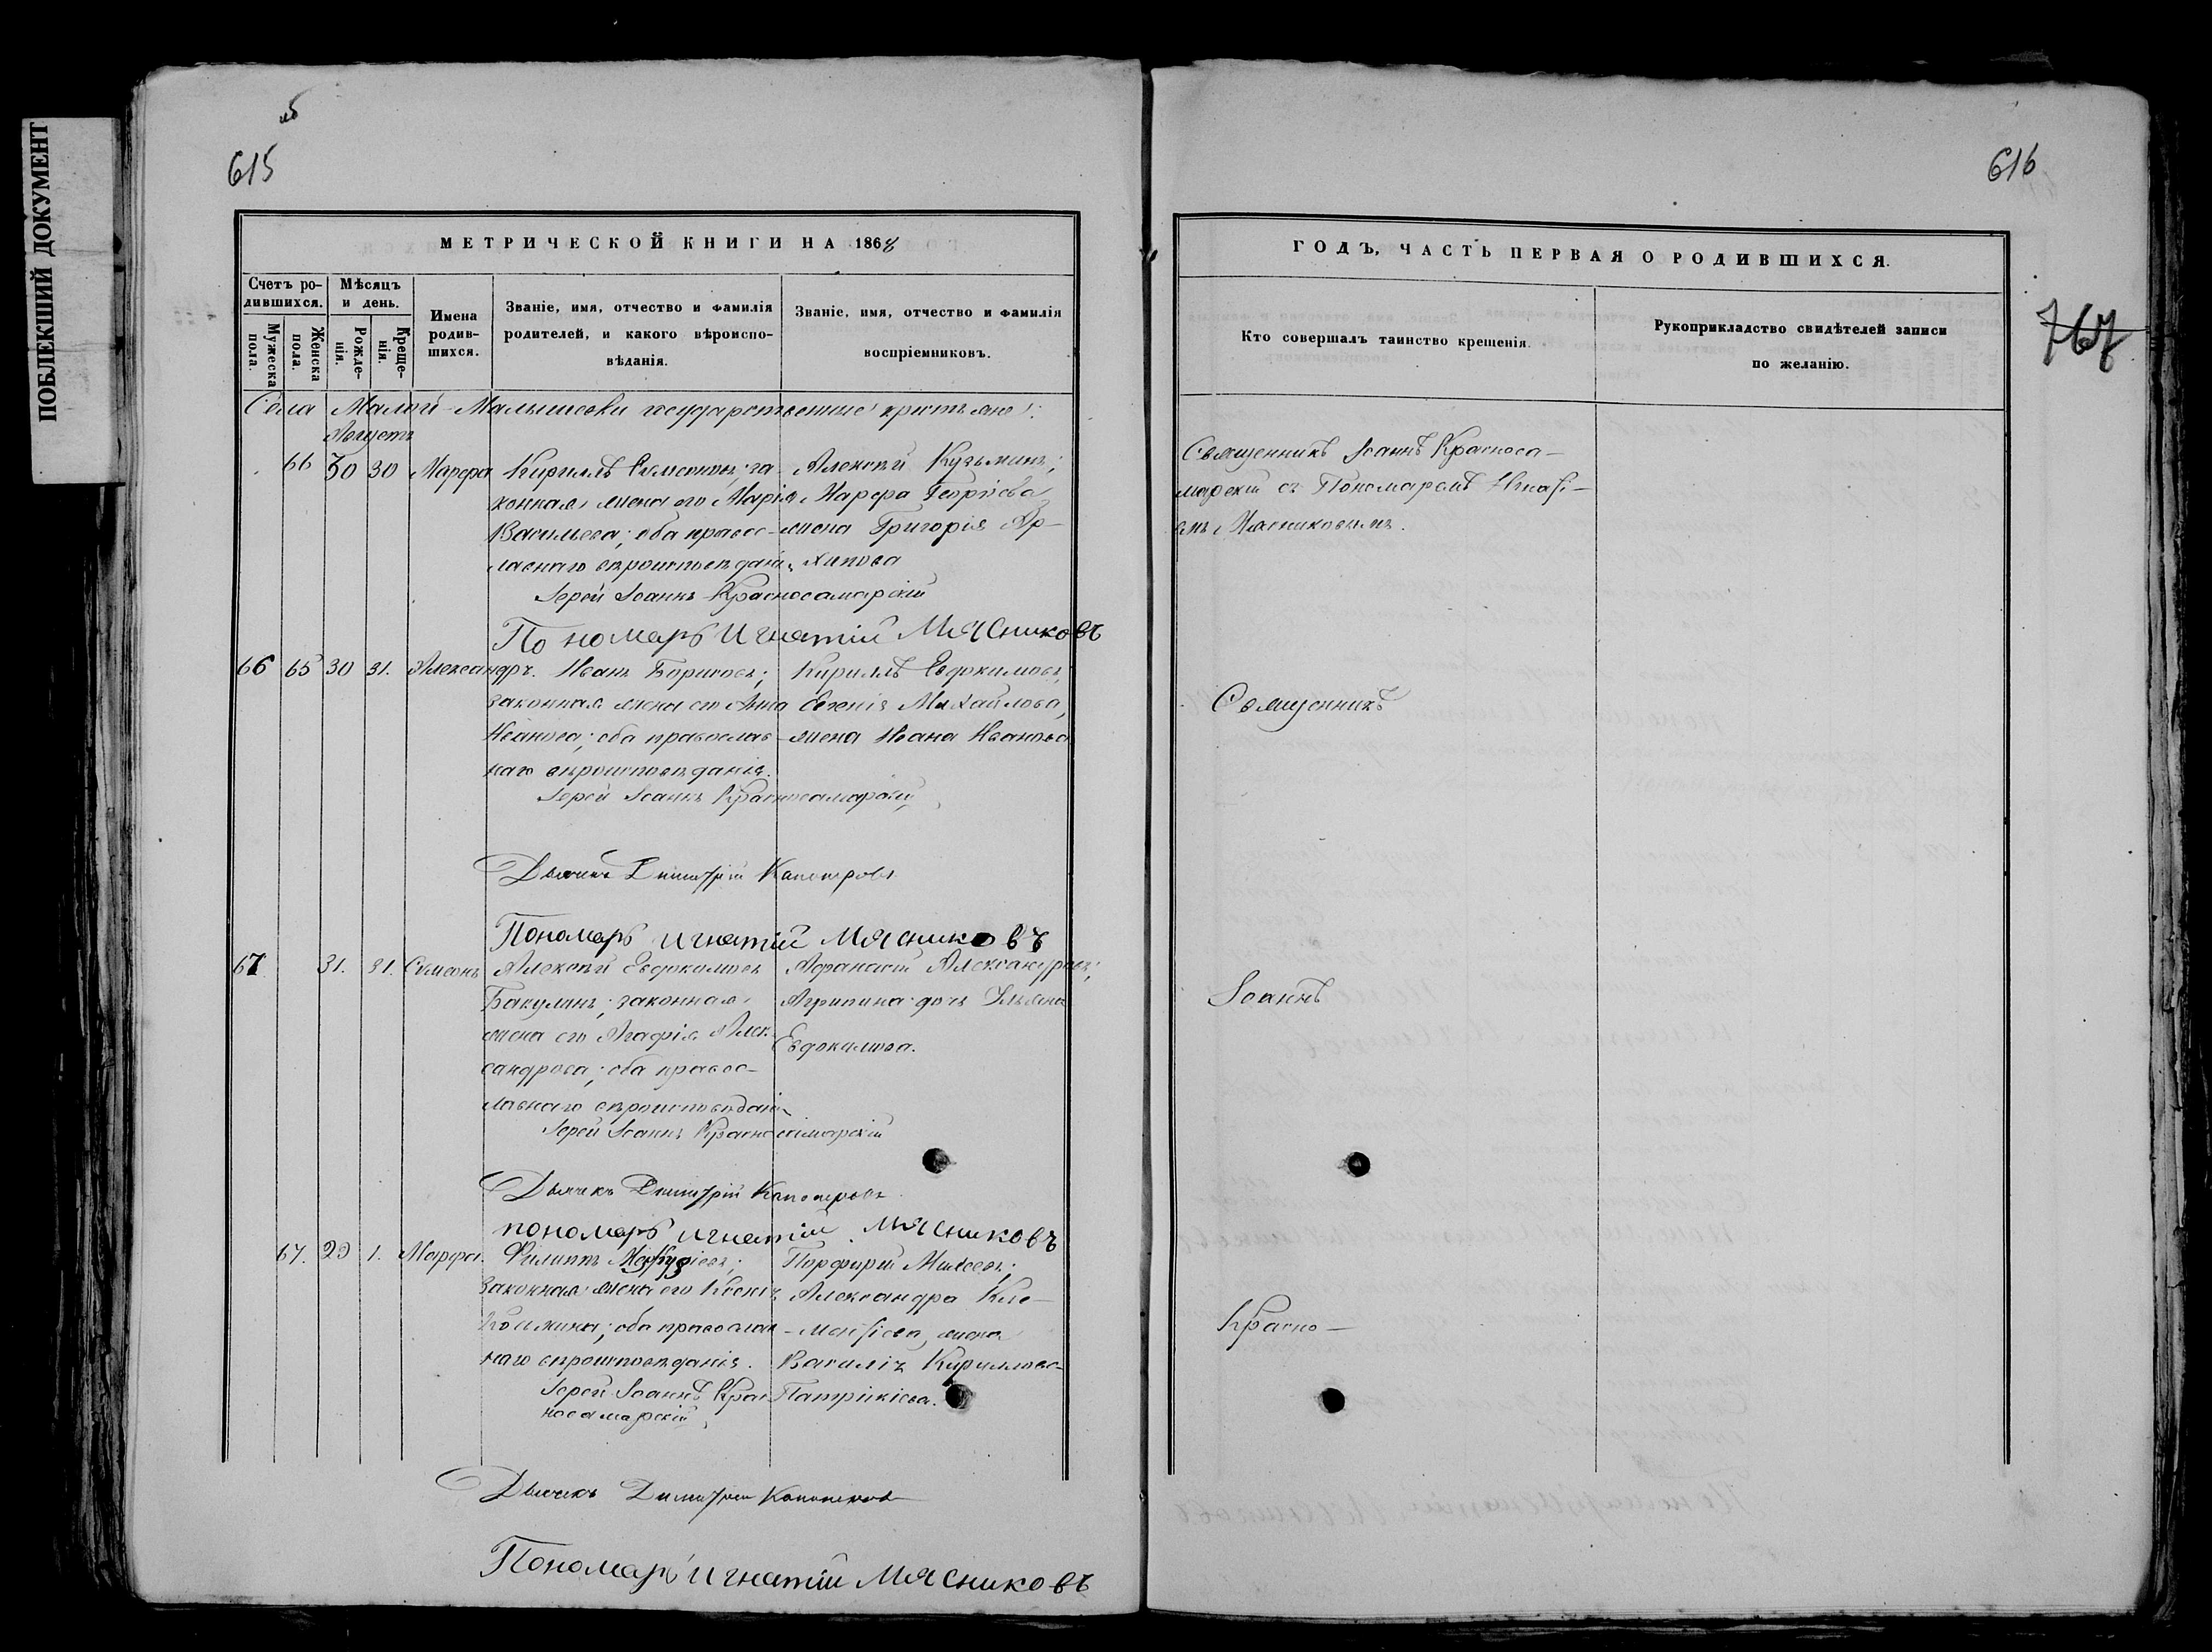 ПОБЛЕКШИЙ ДОКУМЕНТ
615
МЕТРИЧЕСКОЙ КНИГИ НА 1868
Счетъ родившихся.
Мужеска пола.
Женска пола.
Мѣсяцъ и день.
Рожденія.
Крещенія.
Имена родившихся.
Званіе, имя, отчество и фамилія
родителей, и какого вѣроиспо-
вѣданія.
Званіе, имя, отчество и фамилія
воспріемниковъ.
Села Малой Малышевки государственные крестьяне:
Августъ
66 30 30 Марфа
Кириллъ Симеоновъ; за-
конная жена его Марія
Васильева; оба правос-
лавнаго вѣроисповѣданія
Алексѣй Кузьминъ;
Марфа Георгіева
жена Григорія Ар-
хипова
Іерей Іоаннъ Красносамарскій
Пономарь Игнатій Мясниковъ
66 65 30 31. Александръ.
Иванъ Борисовъ;
законная жена его Анна
Иванова; оба православ-
наго вѣроисповѣданія.
Кириллъ Евдокимовъ,
Евгенія Михайлова,
жена Ивана Иванова
Іерей Іоаннъ Красносамарскій
Дьячекъ Димитрій
Пономарь Игнатій Мясниковъ
67 31. 31. Симеонъ
Алексѣй Евдокимовъ
Бакулинъ; законная
жена его Агафія Алек-
сандрова; оба правос-
лавнаго вѣроисповѣданія
Афанасій Александровъ;
Агрипина дочь
Евдокимова.
Іерей Іоаннъ Красносамарскій
Дьячекъ Димитрій
пономарь Игнатій Мясниковъ
67. 29 1. Марфа.
Филиппъ
законная жена его Ксенія
оба православ-
наго вѣроисповѣданія.
Порфирій Михеевъ;
Александра Кле-
ментіева, жена
Василія Кириллова
Патрикіева.
Іерей Іоаннъ Крас-
носамарскій
Дьячекъ Димитрій
Пономарь Игнатій Мясниковъ
616
767
ГОДЪ, ЧАСТЬ ПЕРВАЯ О РОДИВШИХСЯ.
Кто совершалъ таинство крещенія.
Рукоприкладство свидѣтелей записи
по желанію.
Священникъ Іоаннъ Красноса-
марскій съ Пономаремъ Игнаті-
емъ Мясниковымъ.
Священникъ
Іоаннъ
Красно-